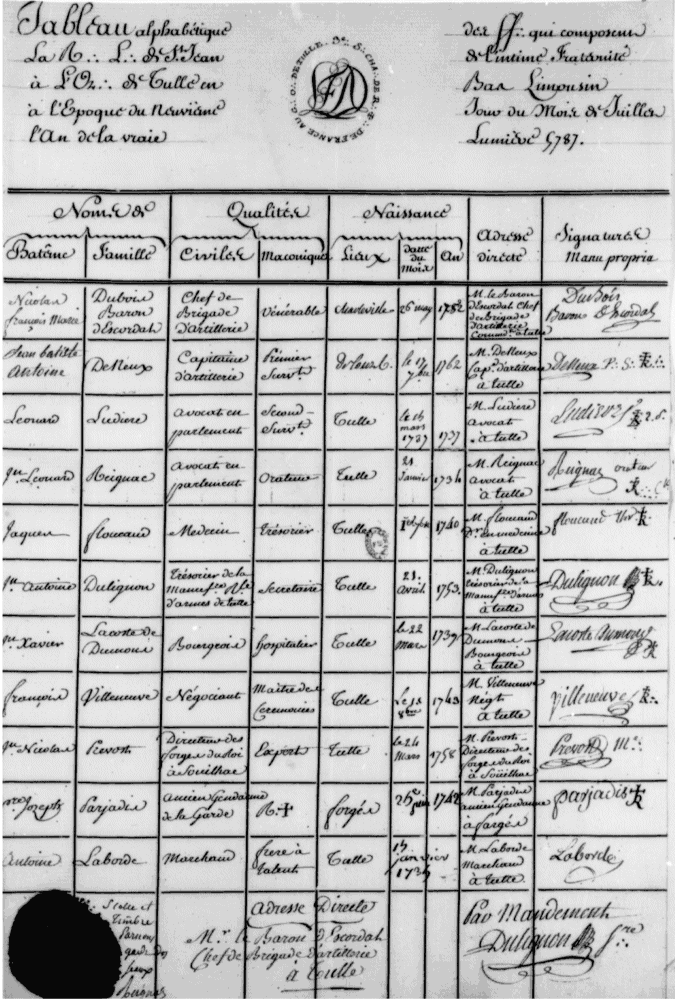 Tableau alphabétique des ff∴ qui composent
La R∴ L∴ de St Jean de l'intime Fraternité
à L'Or∴ de Tulle en Bas Limousin
à l'Epoque du Neuvième Jour du Mois de Juillet
l'An de la vraie Lumière 5787.
Noms de Qualités Naissance Adresse directe Signatures Manu propria
Batême Famille Civiles Maconiques Lieux datte du Mois An
Nicolas François Marie
Dubois Baron d'Escordal
Chef de Brigade d'artillerie
Vénérable
26 may
M. le Baron d'Escordal Chef de Brigade d'artillerie
DuBois Baron d'Escordal
Jean batiste Antoine
DeNeux
Capitaine d'artillerie
Prémier Survt.
le 17 7bre
1762
M. DeNeux Cap. d'artillerie à tulle
DeNeux
Léonard
Ludiere
avocat en parlement
Second Survt.
Tulle
le 16 mars 1737
1737
M. Ludiere avocat à tulle
Ludiere
Léonard
Reignac
avocat en parlement
Orateur
Tulle
21 Janvier
M. Reignac avocat à tulle
Reignac orateur
Jaques
floucaud
Medecin
trésorier
Tulle
1740
M. floucaud Dr. en medecine à tulle
floucaud
Jn. Antoine
Dulignon
trésorier de la Manufre. Rle. d'armes de tulle
Secretaire
Tulle
21. Avril
1753.
M. Dulignon trésorier de la Manufre. d'armes à tulle
Dulignon
Xavier
Lacoste de Dumons
Bourgeois
hospitalier
Tulle
le 22 Mars
1739
M. Lacoste de Dumons Bourgeois à tulle
Lacoste Dumons
françois
Villeneuve
Négociant
Maitre des Ceremonies
Tulle
Le 18 8bre
1743
M. Villeneuve Négt. à tulle
Villeneuve
Jn. Nicolas
Prevost
Directeur des forges du Roi à Souilhac
Expert
tulle
le 24 Mars
1758
M. Prevost Directeur des forges du Roi à Souilhac
Prevost
Joseph
Parjadis
ancien Gendarme de la Garde
R.✝
forgés
1742
M. Parjadis ancien Gendarme à fargés
parjadis
Antoine
Laborde
Marchand
frere à talent
Tulle
15 janvier
M. Laborde Marchand à tulle
Laborde
Scelle et
Timbre
Adresse Directe
Mr. le Baron d'Escordal
Chef de Brigade d'artillerie
à tulle
Par Mandement
Dulignon